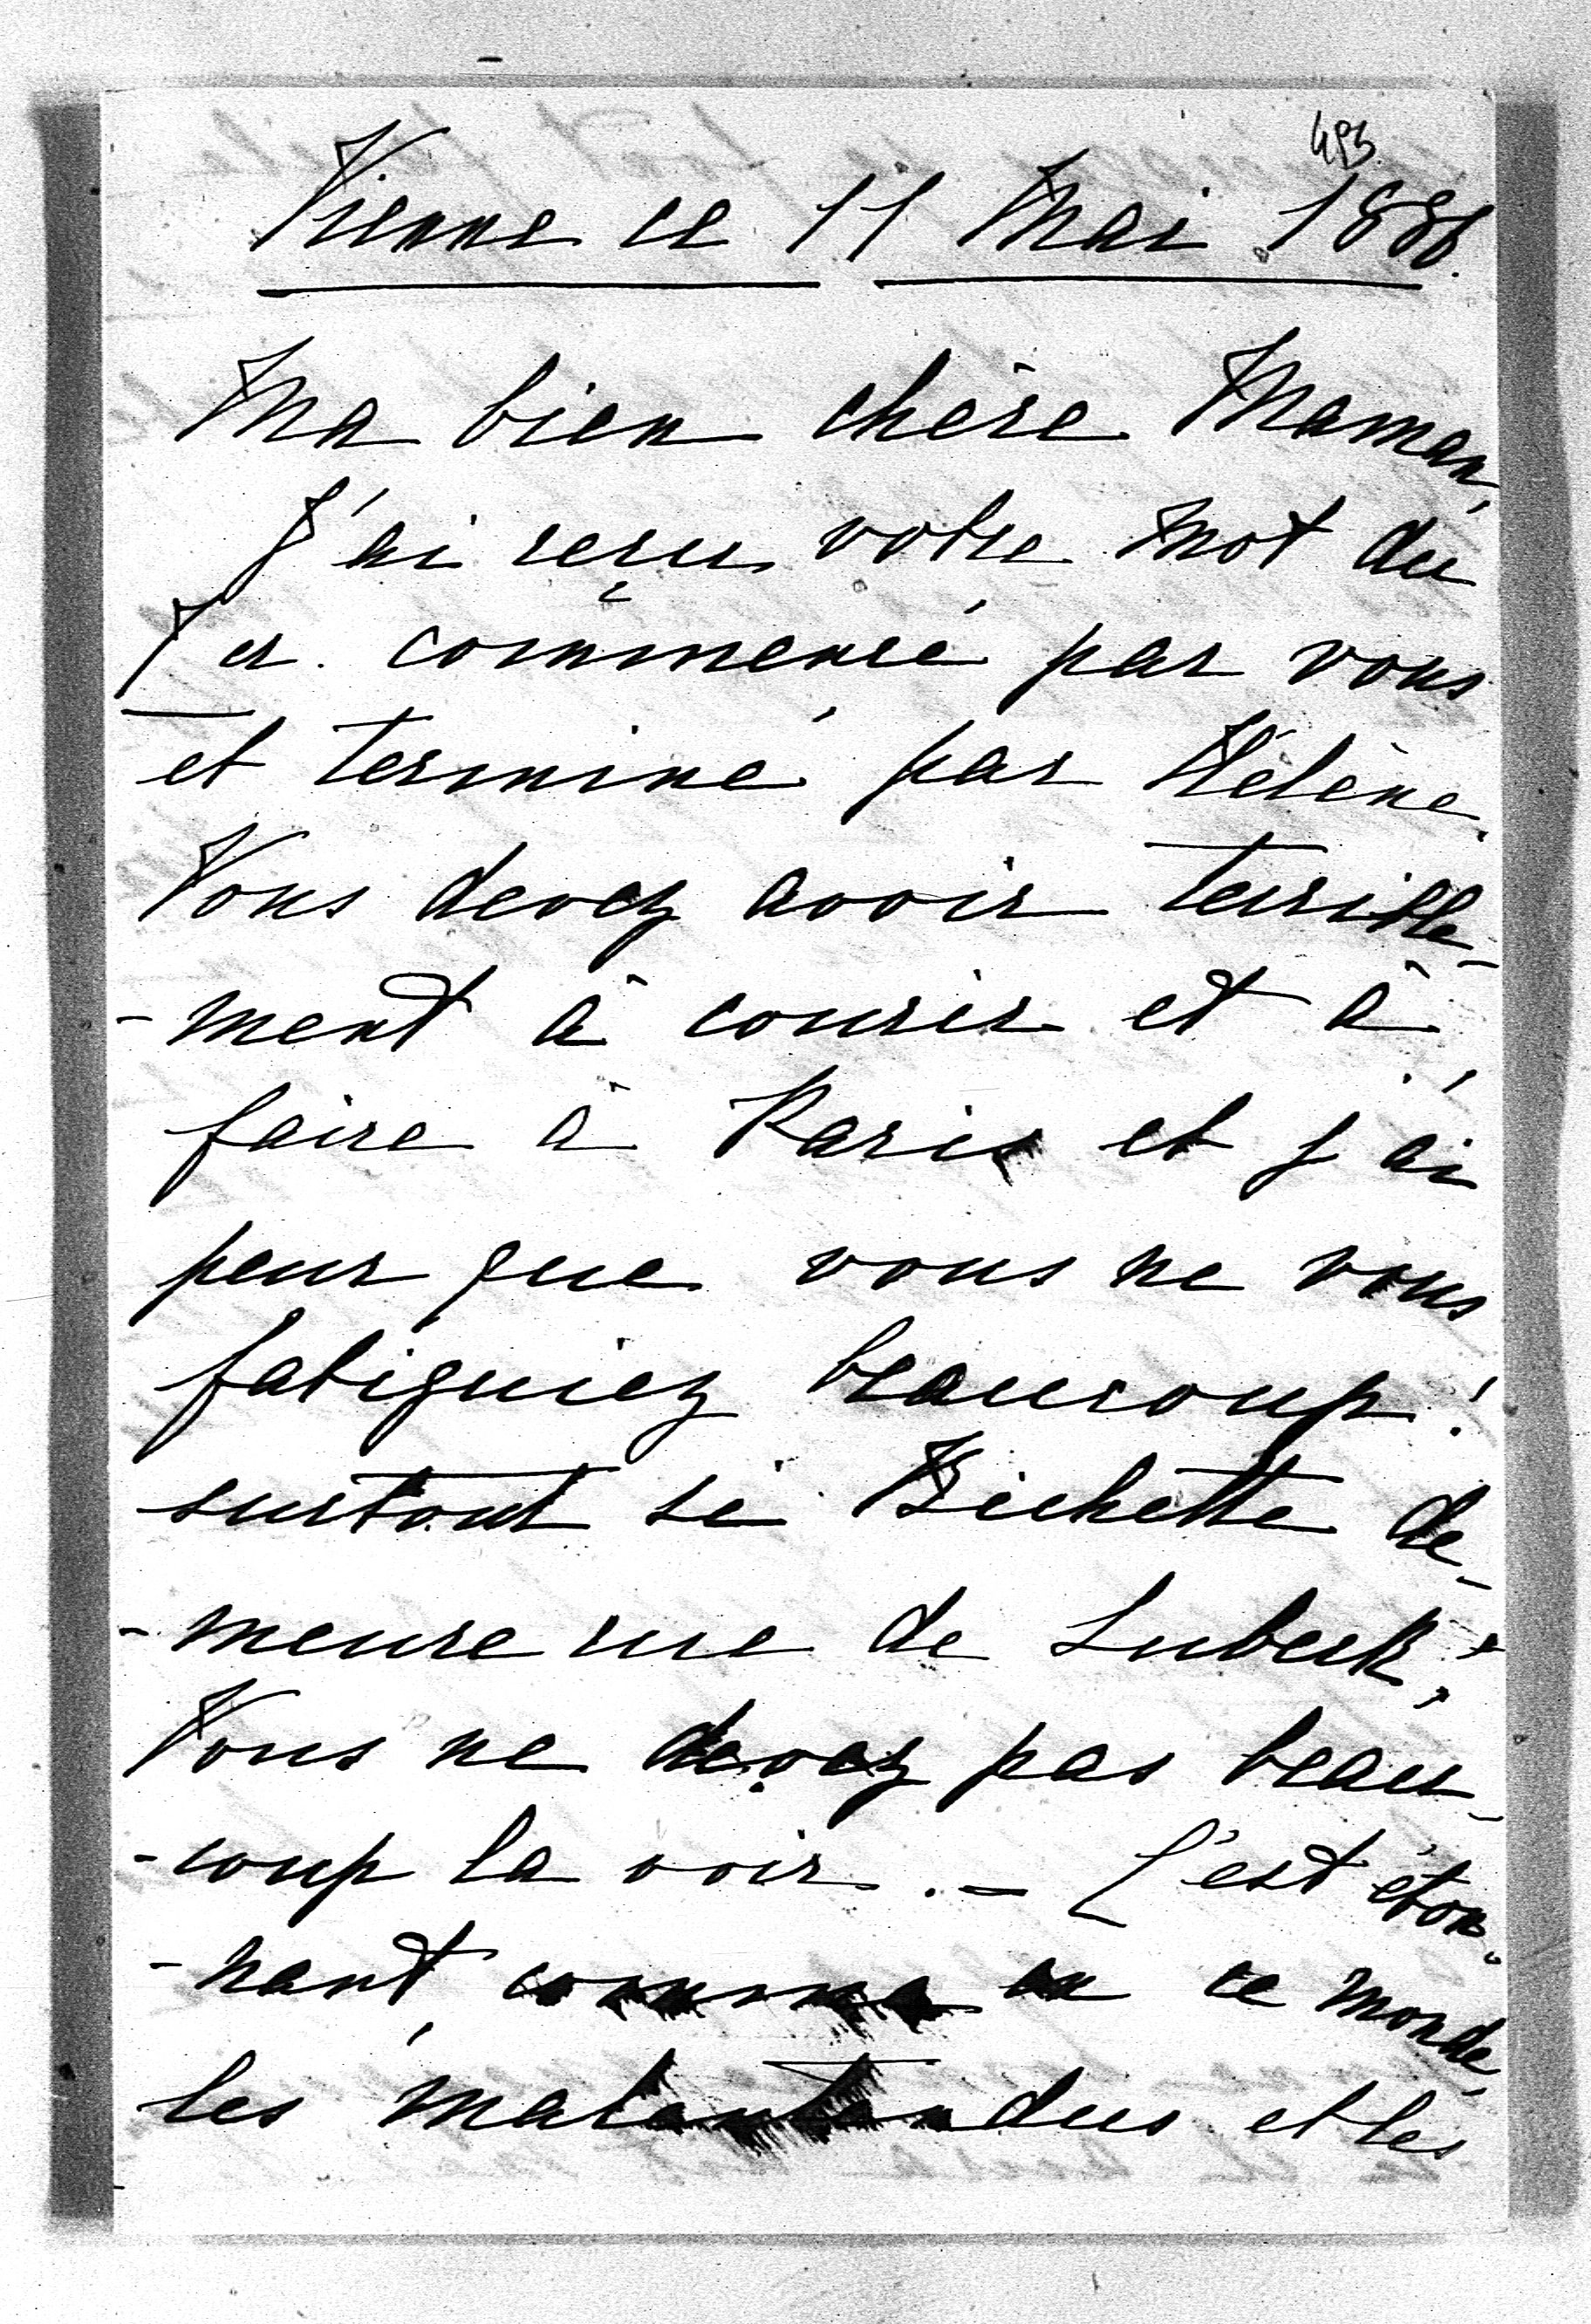 493
Vienne ce 11 Mai 1888.
Ma bien chère Maman,
J'ai reçu votre mot du
7 ct. commencé par vous
et terminé par Hélène.
Vous devez avoir terrible-
-ment à courir et à
faire à Paris et j'ai
peur que vous ne vous
fatiguiez beaucoup!
surtout si Bichette de-
-meure rue de Lubeck;
Vous ne devez pas beau-
-coup la voir. - C'est éton-
-nant, comme en ce monde,
les malentendus et les